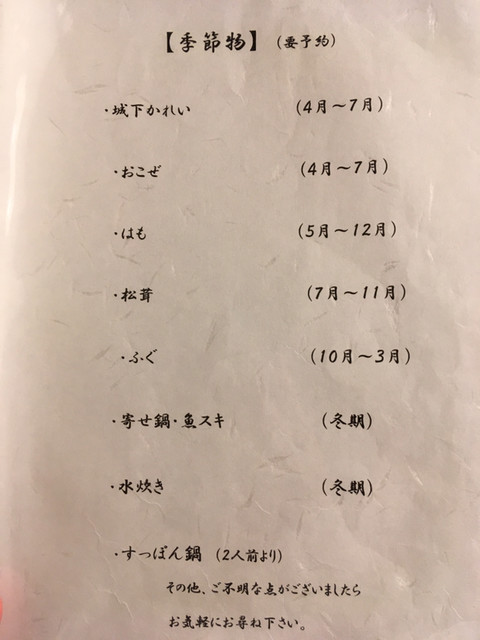 【季節物】（要予約）
・城下かれい （4月～7月）
・おこぜ （4月～7月）
・はも （5月～12月）
・松茸 （7月～11月）
・ふぐ （10月～3月）
・寄せ鍋・魚スキ （冬期）
・水炊き （冬期）
・すっぽん鍋 （2人前より）
その他、ご不明な点がございましたら
お気軽にお尋ね下さい。